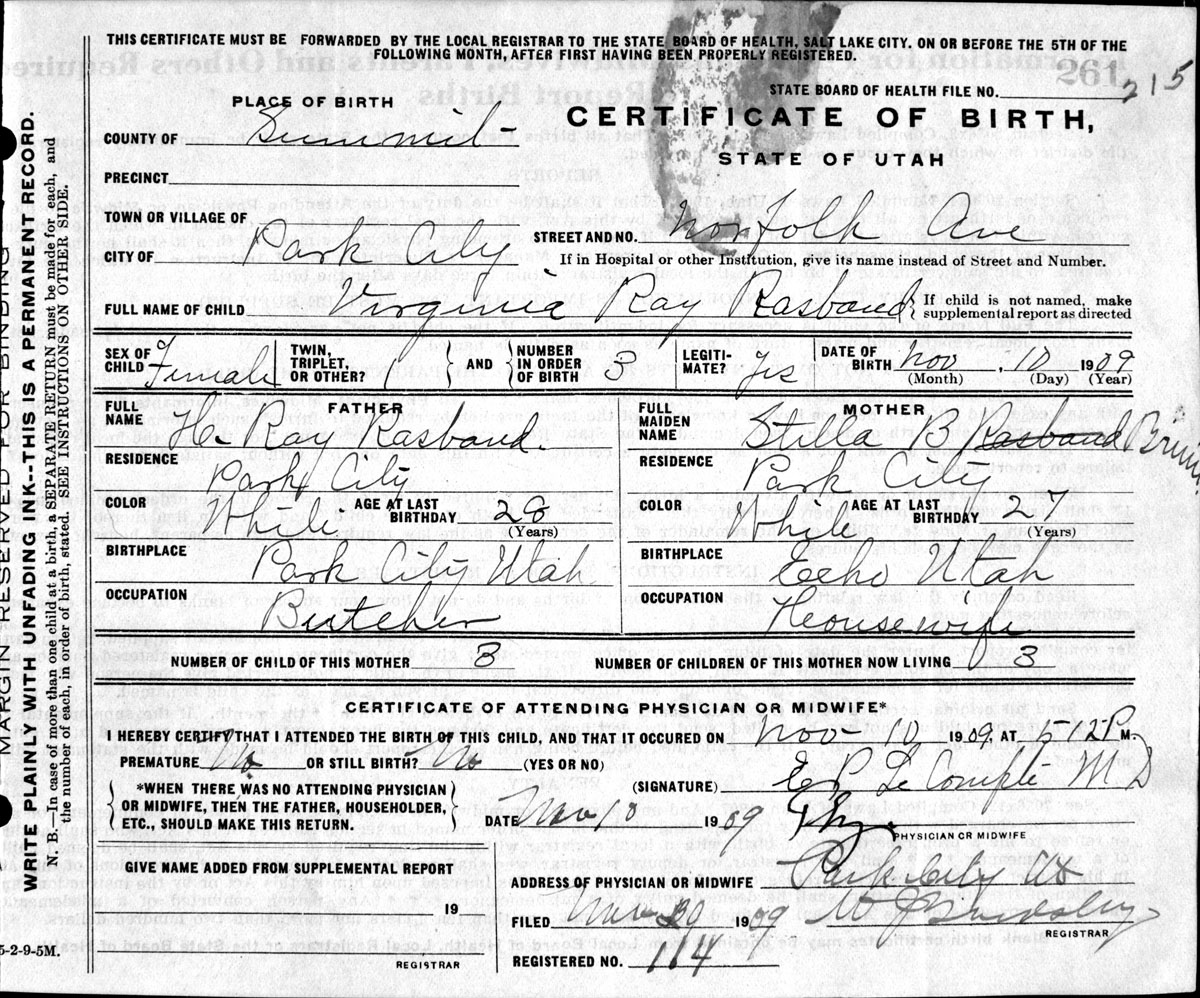 THIS CERTIFICATE MUST BE FORWARDED BY THE LOCAL REGISTRAR TO THE STATE BOARD OF HEALTH, SALT LAKE CITY, ON OR BEFORE THE 5TH OF THE
FOLLOWING MONTH, AFTER FIRST HAVING BEEN PROPERLY REGISTERED.
261
STATE BOARD OF HEALTH FILE NO. 215
PLACE OF BIRTH
CERTIFICATE OF BIRTH,
COUNTY OF Summit
STATE OF UTAH
PRECINCT
TOWN OR VILLAGE OF
STREET AND NO. Norfolk Ave
CITY OF Park City
If in Hospital or other Institution, give its name instead of Street and Number.
FULL NAME OF CHILD Virginia Ray Rasband { If child is not named, make
supplemental report as directed
SEX OF CHILD Female TWIN, TRIPLET, OR OTHER? 1 AND NUMBER IN ORDER OF BIRTH 3 LEGITI-MATE? Yes DATE OF BIRTH Nov. 10 1909
(Month) (Day) (Year)
FATHER
FULL NAME H. Ray Rasband
RESIDENCE
Park City
COLOR White AGE AT LAST BIRTHDAY 28
(Years)
BIRTHPLACE
Park City Utah
OCCUPATION
Butcher
MOTHER
FULL MAIDEN NAME Stilla B Rasband
RESIDENCE
Park City
COLOR White AGE AT LAST BIRTHDAY 27
(Years)
BIRTHPLACE
Echo Utah
OCCUPATION
Housewife
NUMBER OF CHILD OF THIS MOTHER 3 NUMBER OF CHILDREN OF THIS MOTHER NOW LIVING 3
CERTIFICATE OF ATTENDING PHYSICIAN OR MIDWIFE*
I HEREBY CERTIFY THAT I ATTENDED THE BIRTH OF THIS CHILD, AND THAT IT OCCURED ON Nov 10 1909, AT 5-12 P M.
PREMATURE No OR STILL BIRTH? No (YES OR NO)
(SIGNATURE) E P Le Compte M D
{ *WHEN THERE WAS NO ATTENDING PHYSICIAN
OR MIDWIFE, THEN THE FATHER, HOUSEHOLDER,
ETC., SHOULD MAKE THIS RETURN. }
DATE Nov 10 1909 Phy.
PHYSICIAN OR MIDWIFE
GIVE NAME ADDED FROM SUPPLEMENTAL REPORT
19
REGISTRAR
ADDRESS OF PHYSICIAN OR MIDWIFE Park City
FILED 1909
REGISTRAR
REGISTERED NO. 114
MARGIN RESERVED FOR BINDING
WRITE PLAINLY WITH UNFADING INK--THIS IS A PERMANENT RECORD.
N. B.—In case of more than one child at a birth, a SEPARATE RETURN must be made for each, and
the number of each, in order of birth, stated. SEE INSTRUCTIONS ON OTHER SIDE.
5-2-9-5M.